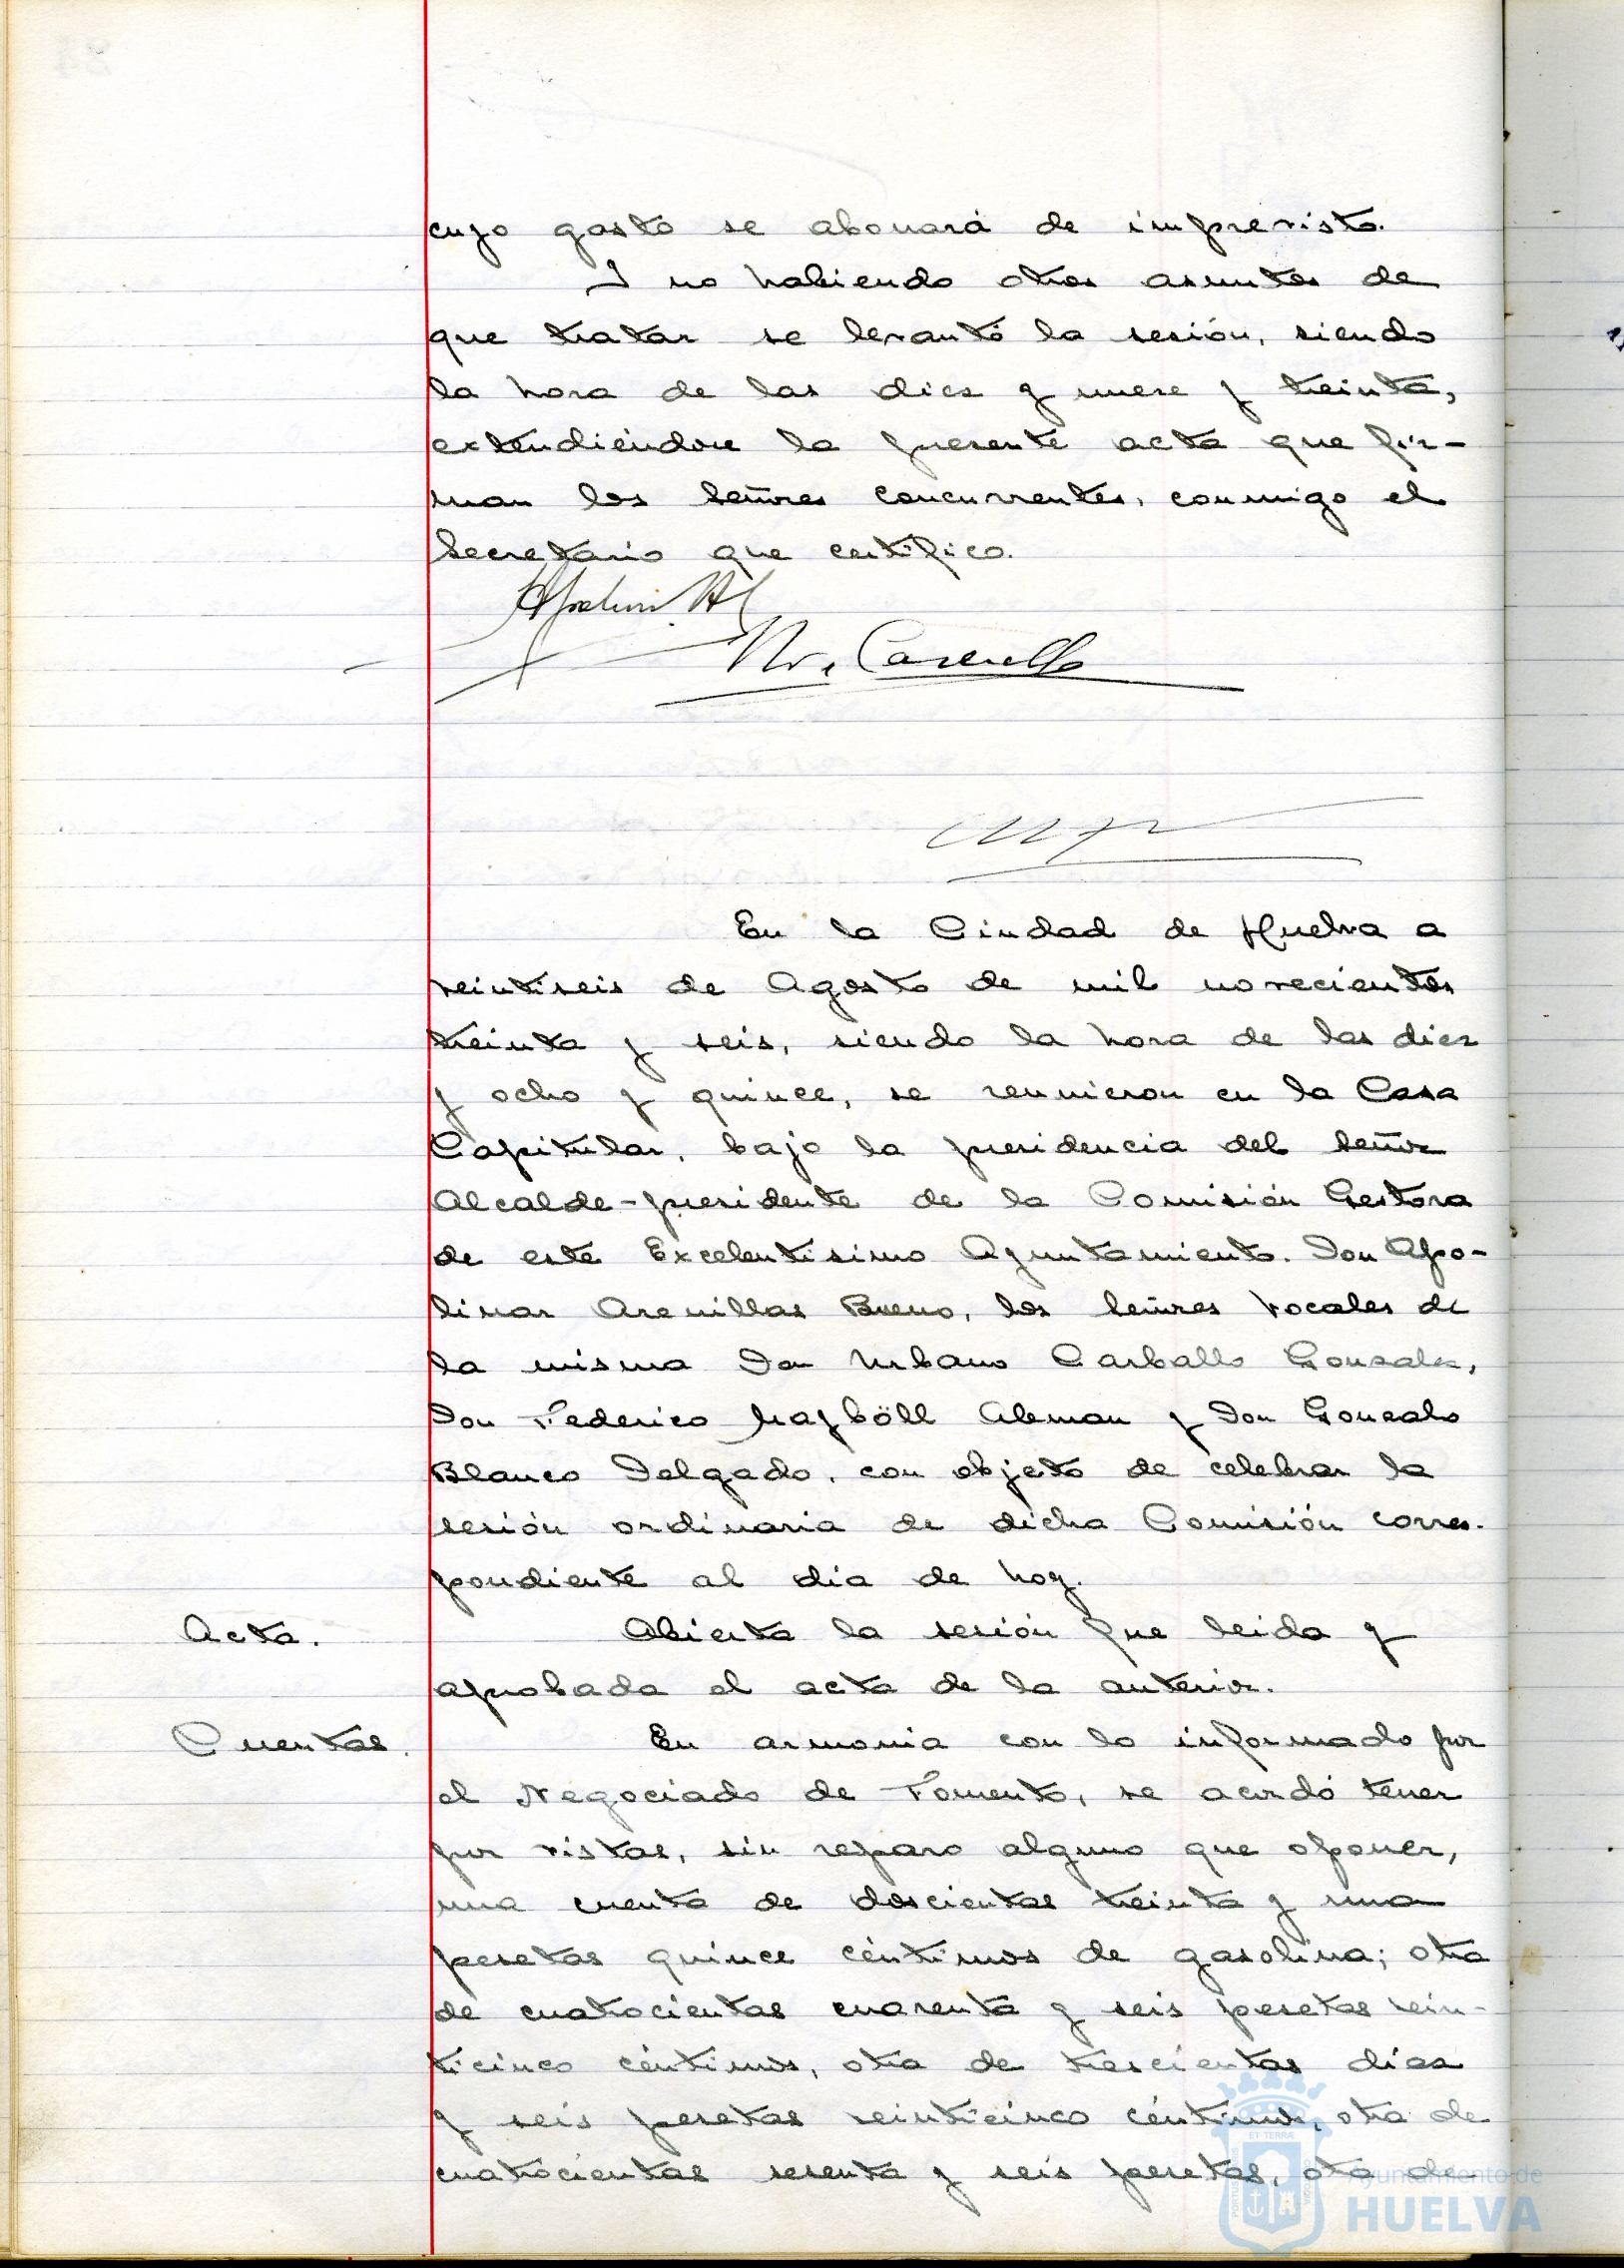 cuyo gasto se abonará de imprevisto.
Y no habiendo otros asuntos de
que tratar se levantó la sesión, siendo
la hora de las diez y nueve y treinta,
extendiéndose la presente acta que fir-
man los Señores concurrentes, conmigo el
Secretario que certifico.
En la Ciudad de Huelva a
veintiseis de Agosto de mil novecientos
treinta y seis, siendo la hora de las diez
y ocho y quince, se reunieron en la Casa
Capitular, bajo la presidencia del Señor
Alcalde-presidente de la Comisión Gestora
de este Excelentísimo Ayuntamiento. Don Apo-
linar Arenillas Bueno, los Señores Vocales de
la misma Don Urbano Carballo Gonzalez,
Don Federico Mayböll Aleman y Don Gonzalo
Blanco Delgado, con objeto de celebrar la
sesión ordinaria de dicha Comisión corres-
pondiente al día de hoy.
Acta. Abierta la sesión fue leida y
aprobada el acta de la anterior.
Cuentas. En armonia con lo informado por
el Negociado de Fomento, se acordó tener
por vistas, sin reparo alguno que oponer,
una cuenta de doscientas treinta y una
pesetas quince céntimos de gasolina; otra
de cuatrocientas cuarenta y seis pesetas vein-
ticinco céntimos, otra de trescientas diez
y seis pesetas veinticinco céntimos, otra de
cuatrocientas sesenta y seis pesetas, otra de
Ayuntamiento de
HUELVA